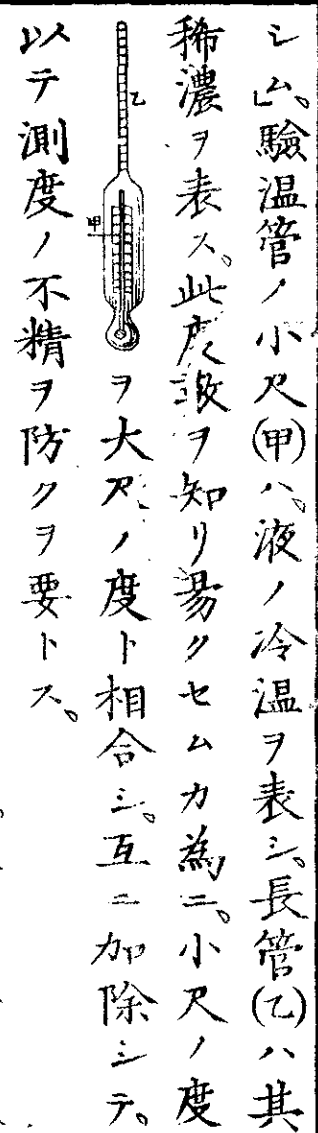 シム。驗温管ノ小尺(甲)ハ。液ノ冷温ヲ表シ。長管(乙)ハ其
稀濃ヲ表ス。此度数ヲ知リ易クセムカ為ニ。小尺ノ度
乙
甲
ヲ大尺ノ度ト相合シ。互ニ加除シテ。
以テ測度ノ不精ヲ防クヲ要トス。